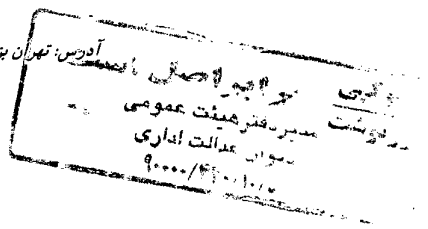 آدرس: تهران
کپی برابر اصل است
رونوشت
مدیر دفتر هیئت عمومی
دیوان عدالت اداری